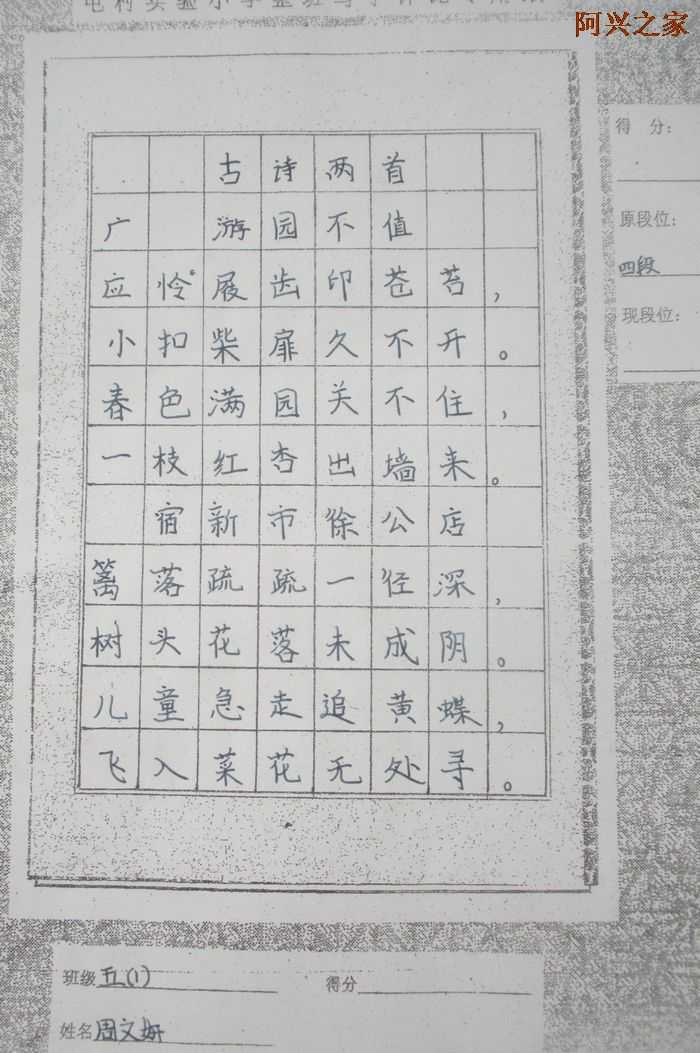 阿兴之家
电村实验小学
得 分：
原段位：
四段
现段位：
古诗两首
广 游园不值
应怜屐齿印苍苔，
小扣柴扉久不开。
春色满园关不住，
一枝红杏出墙来。
宿新市徐公店
篱落疏疏一径深，
树头花落未成阴。
儿童急走追黄蝶，
飞入菜花无处寻。
班级 五(1) 得分
姓名 周文妍